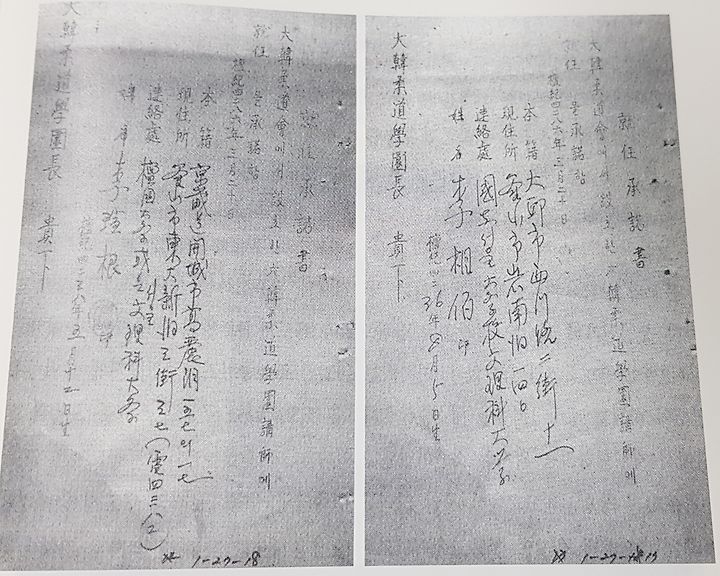 就任承諾書
大韓柔道會에서 設立한 大韓柔道學園講師에
就任을 承諾함
檀紀四二八六年 三月二十日
本籍 京畿道開城市高麗洞一五七의一七
現住所 釜山市東大新洞三街三七(電四三八二)
連絡處 檀國大學 或은 서울 文理科大學
姓名 李瑄根 印
檀紀四二三八年五月十二日生
大韓柔道學園長 貴下
1-27-18
就任承諾書
大韓柔道會에서 設立한 大韓柔道學園講師에
就任을 承諾함
檀紀四二八六年 三月二十日
本籍 大邱市西門路二街十一
現住所 釜山市岩南洞一四
連絡處 國立서울大學校文理科大学
姓名 李相佰 印
檀紀四二三六年 月5日生
大韓柔道學園長 貴下
1-27-19